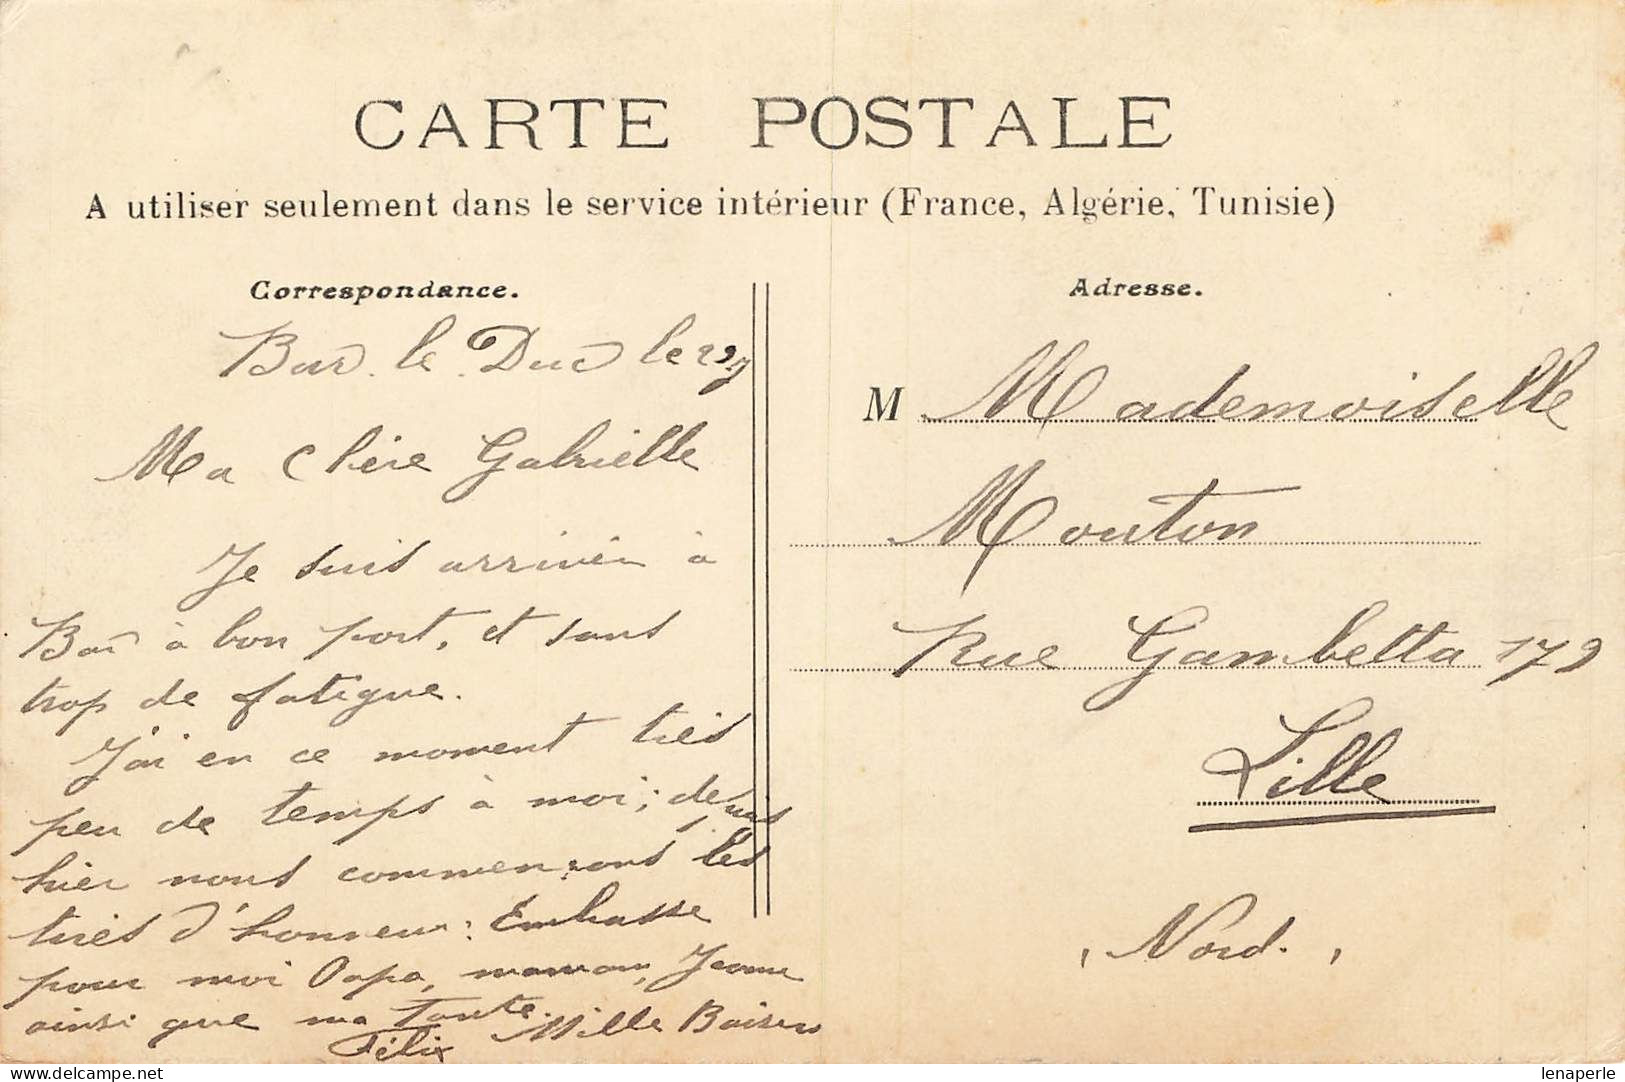 CARTE POSTALE
A utiliser seulement dans le service intérieur (France, Algérie, Tunisie)
Correspondance.
Bar le Duc le 29
Ma Chère Gabrielle
Je suis arrivée à
Bar à bon port, et sans
trop de fatigue.
J'ai en ce moment très
peu de temps à moi; depuis
hier nous commençons les
tirés d'honneur: Embrasse
pour moi Papa, maman, Jeanne
ainsi que ma Tante.
Mille Baisers
Félix
Adresse.
M Mademoiselle
Mouton
Rue Gambetta 179
Lille
Nord.
delcampe.net
lenaperle